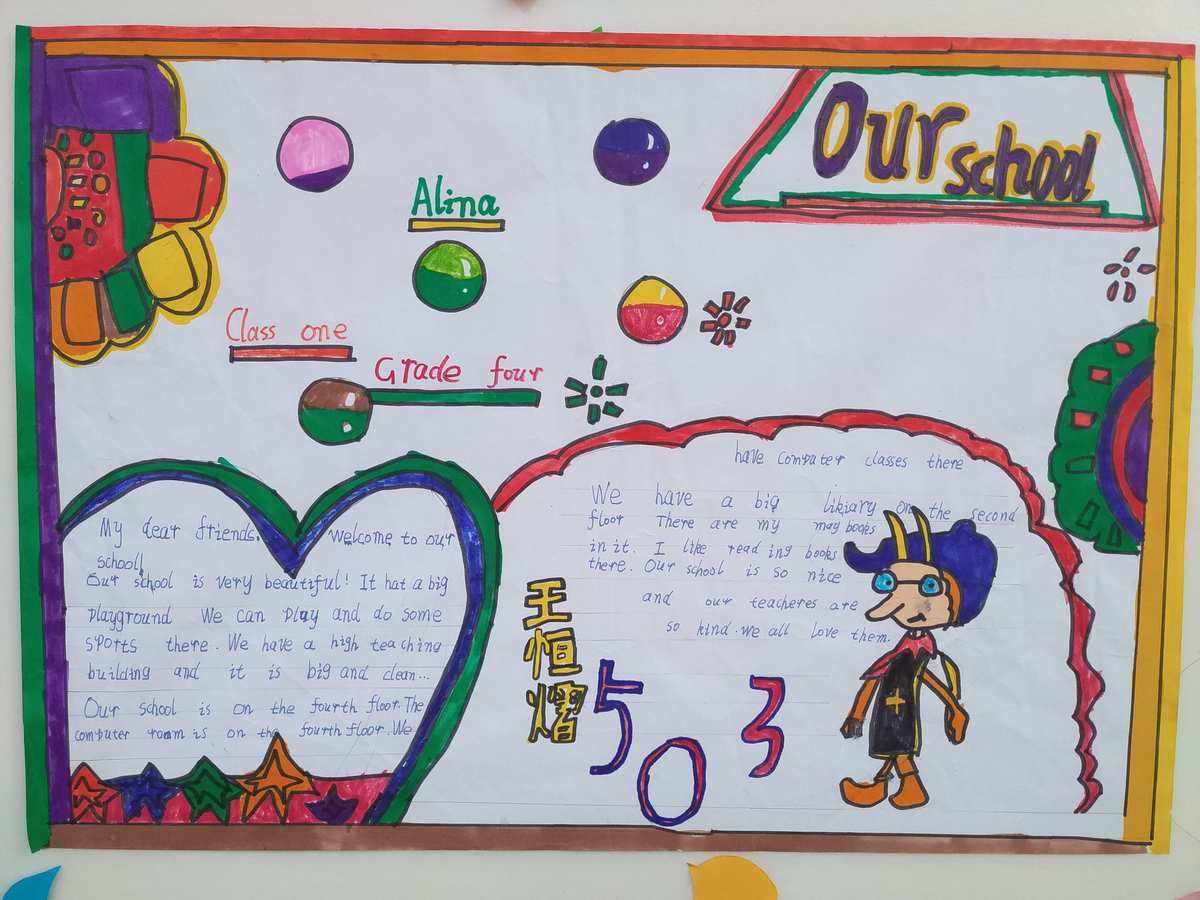 Our school
Alina
Class one
Grade four
My dear friends.
welcome to our
school!
Our school is very beautiful! It hat a big
playground We can play and do some
sports there. We have a high teaching
building and it is big and clean...
Our school is on the fourth floor. The
computer room is on the fourth floor. We
have computer classes there
We have a big likiary on the second
floor There are my may books
in it. I like reading books
there. Our school is so nice
and our teacheres are
so kind. we all love them.
王恒熠
503